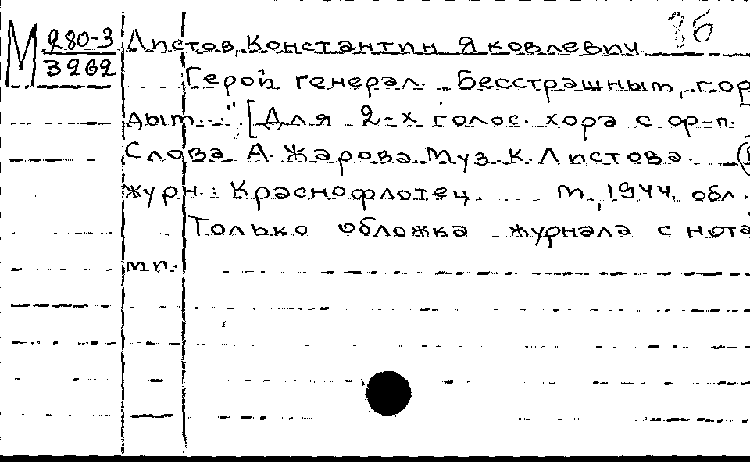 М 280-3
3262
Листов, Константин Яковлевич
Герой генерал. „Бесстрашным, гор
дым..." [Для 2-х голос. хора с ф-п.
Слова А. Жарова. Муз. К. Листова.
журн.: Краснофлотец. М., 1944, обл.
Только обложка журнала с нота
ми.